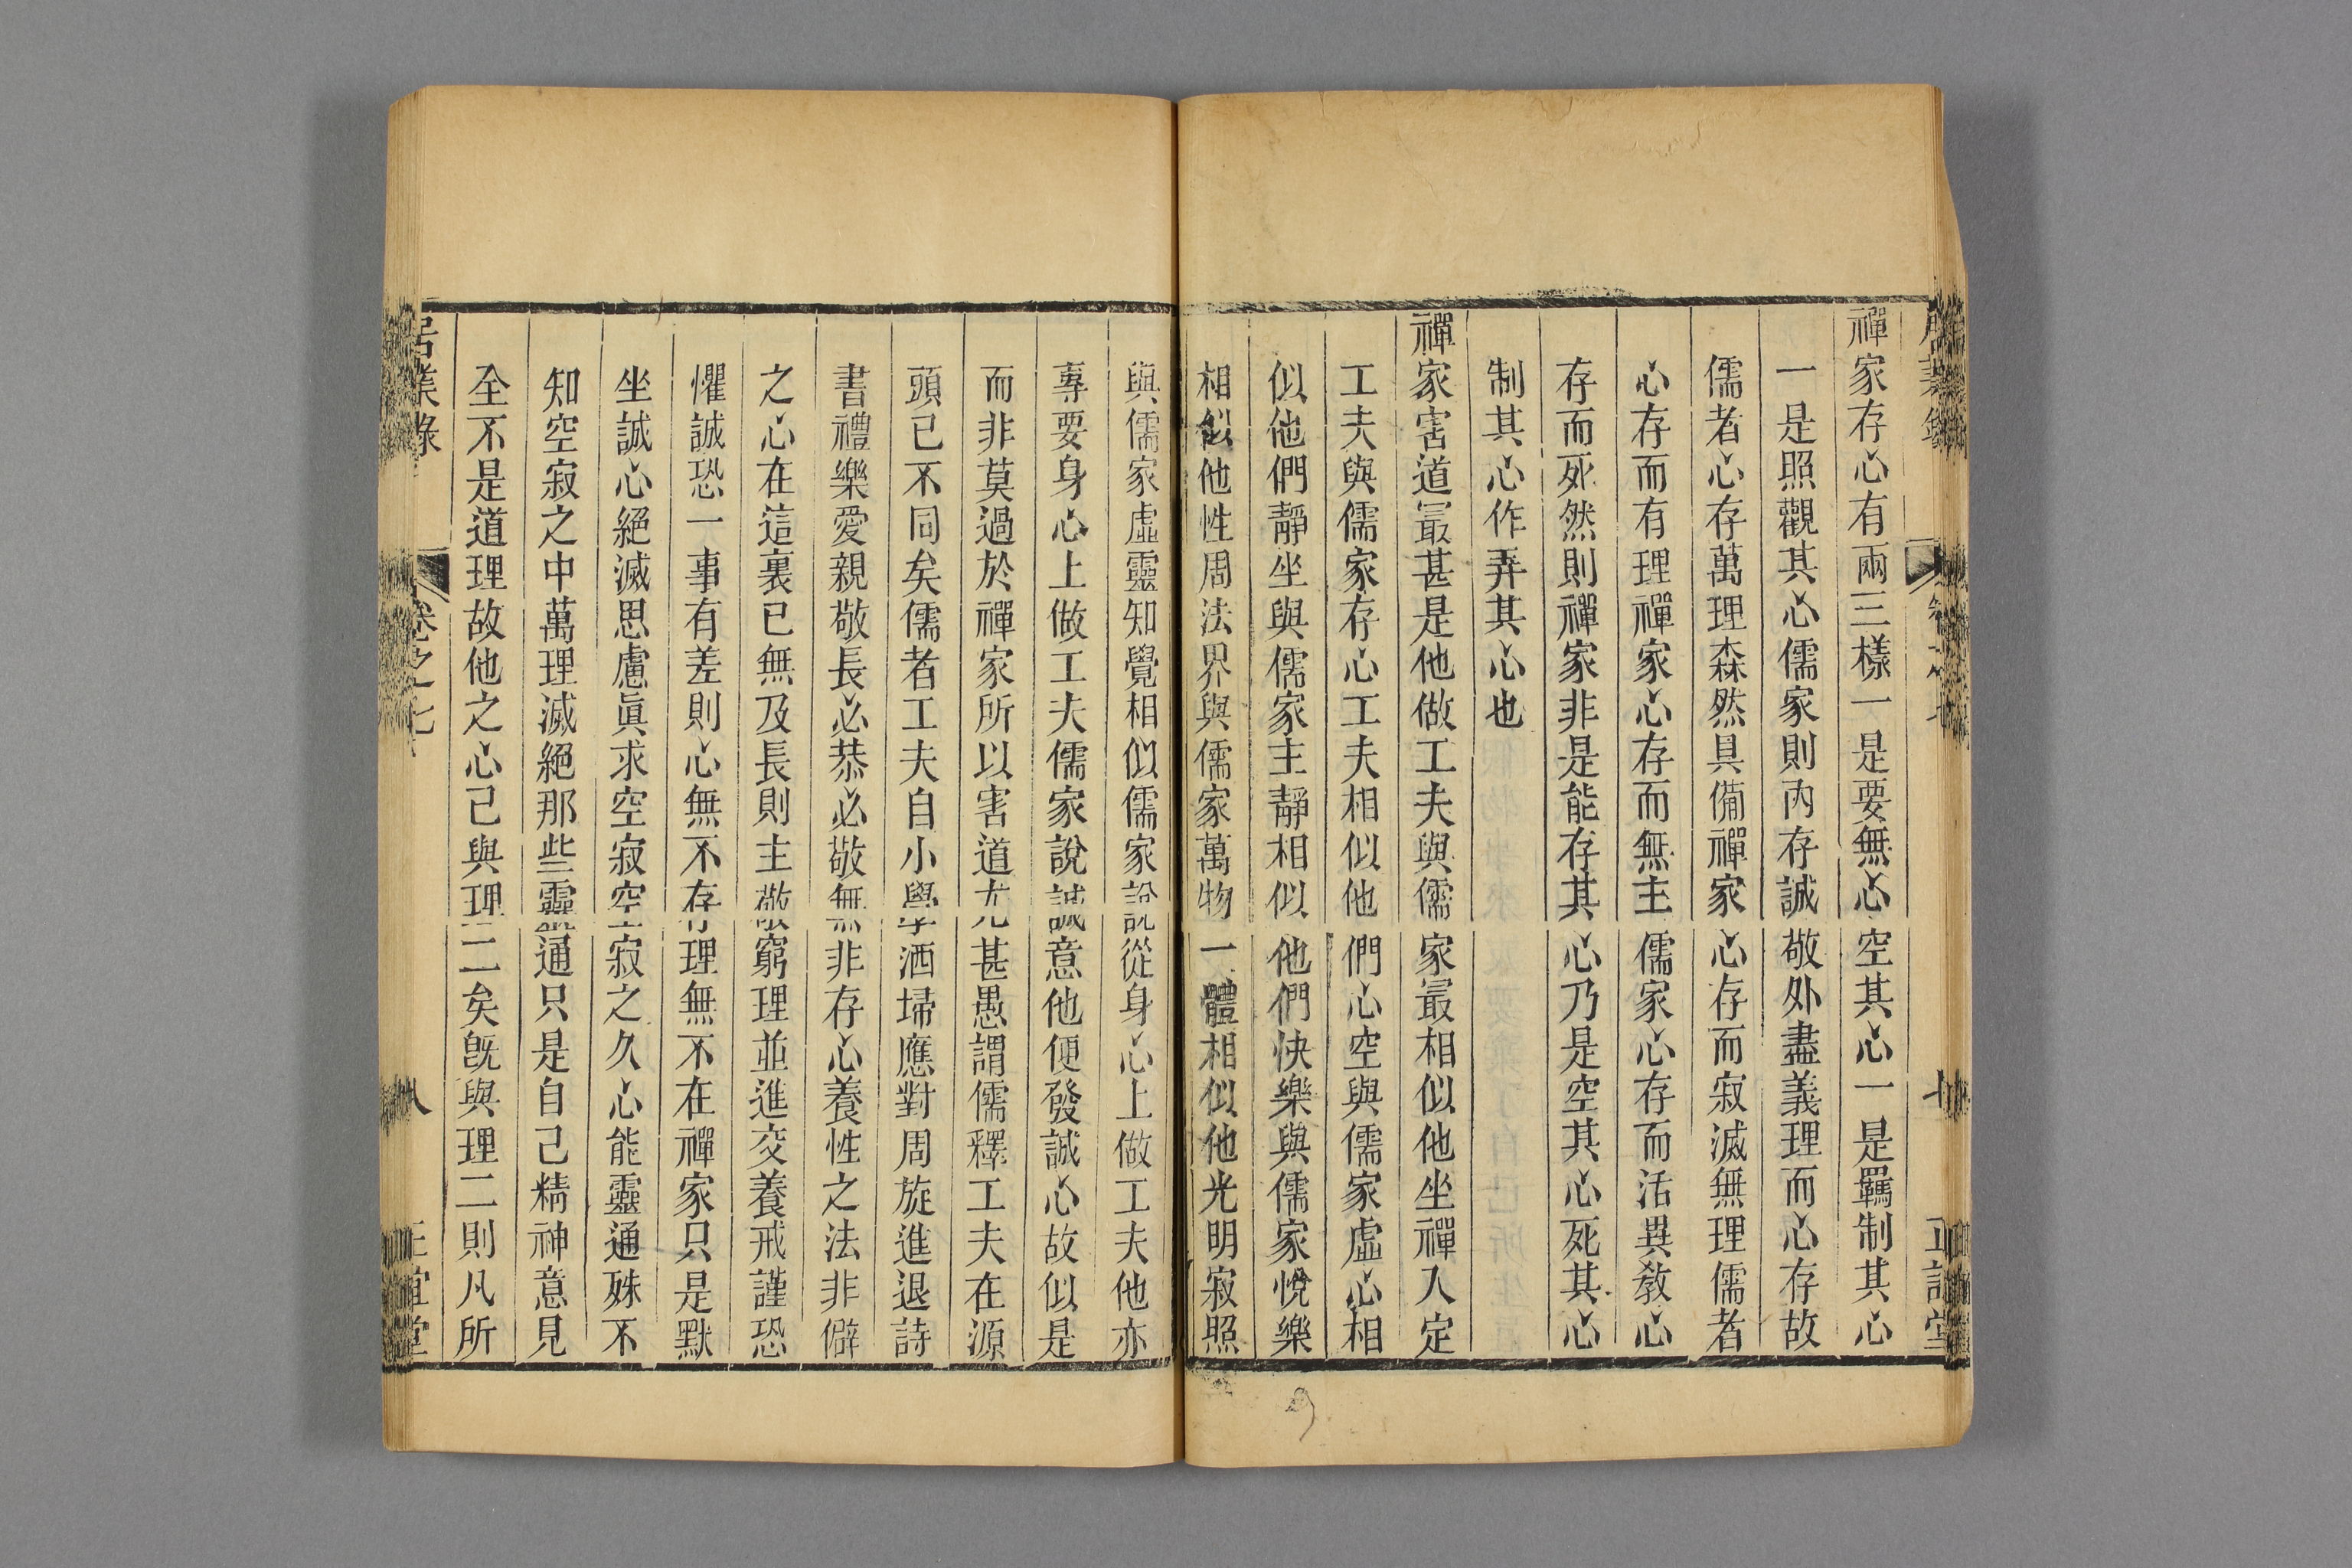 禪家存心有兩三樣一是要無心空其心一是羈制其心
一是照觀其心儒家則內存誠敬外盡義理而心存故
儒者心存萬理森然具備禪家心存而寂滅無理儒者
心存而有理禪家心存而無主儒家心存而活異教心
存而死然則禪家非是能存其心乃是空其心死其心
制其心作弄其心也
禪家害道最甚是他做工夫與儒家最相似他坐禪入定
工夫與儒家存心工夫相似他們心空與儒家虛心相
似他們靜坐與儒家主靜相似他們快樂與儒家悅樂
相似他性周法界與儒家萬物一體相似他光明寂照
與儒家虛靈知覺相似儒家說從身心上做工夫他亦
專要身心上做工夫儒家說誠意他便發誠心故似是
而非莫過於禪家所以害道尤甚愚謂儒釋工夫在源
頭已不同矣儒者工夫自小學洒埽應對周旋進退詩
書禮樂愛親敬長必恭必敬無非存心養性之法非僻
之心在這裏已無及長則主敬窮理並進交養戒謹恐
懼誠恐一事有差則心無不存理無不在禪家只是默
坐誠心絕滅思慮眞求空寂空寂之久心能靈通殊不
知空寂之中萬理滅絕那些靈通只是自己精神意見
全不是道理故他之心己與理二矣旣與理二則凡所
居業錄
卷之七
八
正誼堂